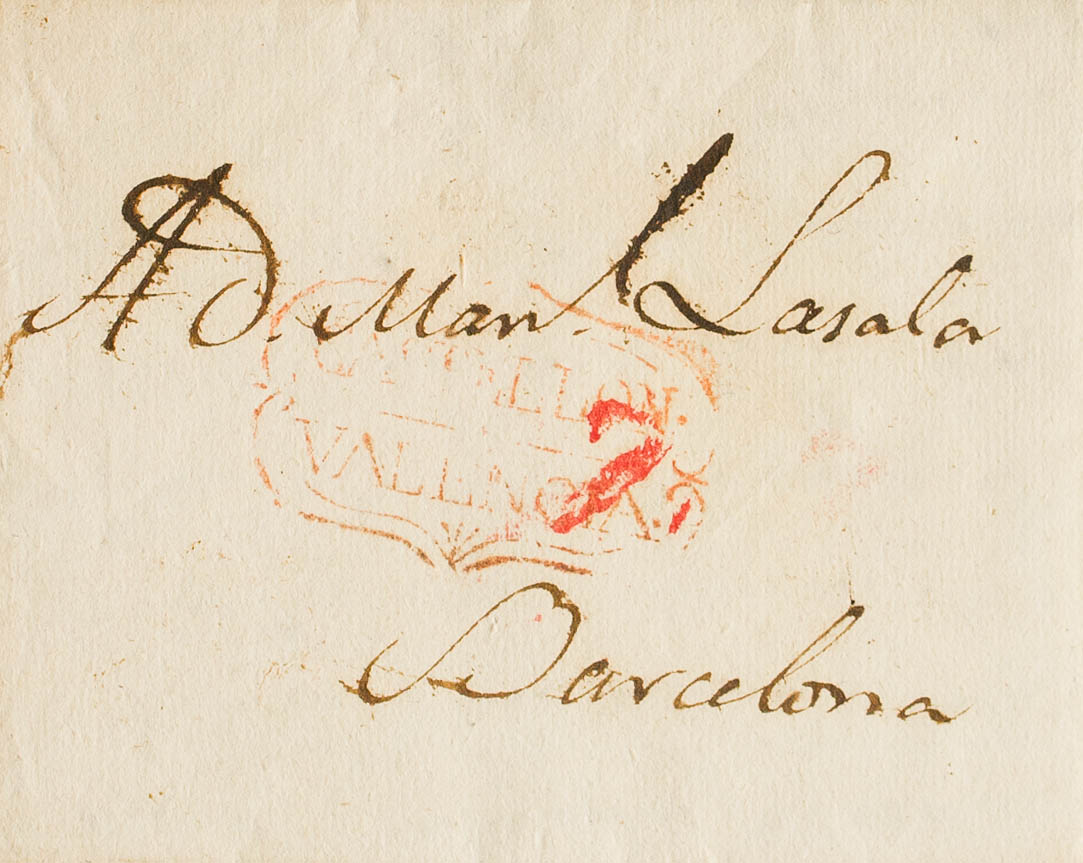 A D. Man.l Lasala
CASTELLON.
VALENCIA.
7
Barcelona